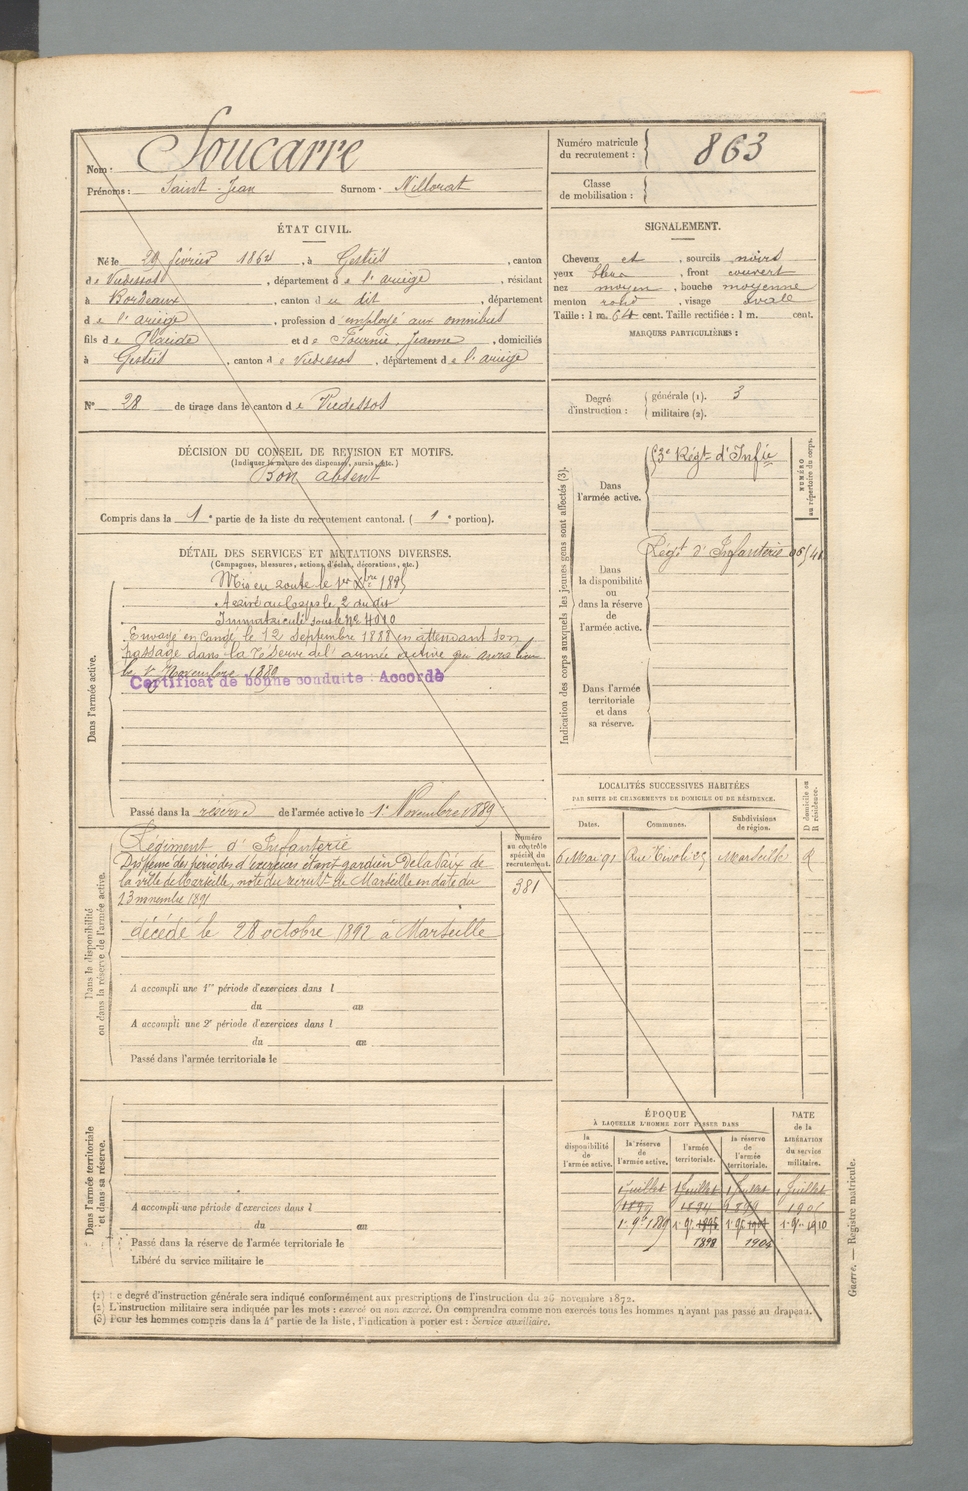 Nom : Soucarre
Prénoms : Saint-Jean Surnom : Nillorat
Numéro matricule du recrutement : 863
Classe de mobilisation :
ÉTAT CIVIL.
Né le 29 février 1864, à Gestiés, canton
de Vicdessos, département de l'ariège, résidant
à Bordeaux, canton du dit, département
de l'ariège, profession d'employé aux omnibus
fils de Claude et de Fournié, Jeanne, domiciliés
à Gestiés, canton de Vicdessos, département de l'ariège
N° 28 de tirage dans le canton de Vicdessos
SIGNALEMENT.
Cheveux et, sourcils noirs
yeux bleus, front couvert
nez moyen, bouche moyenne
menton rond, visage ovale
Taille : 1 m. 64 cent. Taille rectifiée : 1 m. cent.
MARQUES PARTICULIÈRES :
Degré d'instruction : générale (1). 3
militaire (2).
DÉCISION DU CONSEIL DE REVISION ET MOTIFS.
(Indiquer la nature des dispenses, sursis, etc.)
Bon absent
Compris dans la 1e partie de la liste du recrutement cantonal. (1e portion).
DÉTAIL DES SERVICES ET MUTATIONS DIVERSES.
(Campagnes, blessures, actions d'éclat, décorations, etc.)
Dans l'armée active.
Mis en route le 1er Xbre 1885
Arrivé au Corps le 2 du dit
Immatriculé sous le N° 4010
Envoyé en Congé le 12 Septembre 1888 en attendant son
passage dans la réserve de l'armée active qui aura lieu
le 1er Novembre 1889
Certificat de bonne conduite : Accordé
Passé dans la réserve de l'armée active le 1er Novembre 1889
Dans la disponibilité ou dans la réserve de l'armée active.
Régiment d'Infanterie
Dispensé des périodes d'exercices étant gardien de la Paix de
la ville de Marseille, note du recrutt de Marseille en date du
décédé le 28 octobre 1892 à Marseille
Numéro au contrôle spécial du recrutement.
381
A accompli une 1re période d'exercices dans l
du au
A accompli une 2e période d'exercices dans l
du au
Passé dans l'armée territoriale le
Dans l'armée territoriale et dans sa réserve.
A accompli une période d'exercices dans l
du au
Passé dans la réserve de l'armée territoriale le
Libéré du service militaire le
Indication des corps auxquels les jeunes gens sont affectés (3).
NUMÉRO au répertoire du corps.
Dans l'armée active.
Régt d'Infie
Dans la disponibilité ou dans la réserve de l'armée active.
Régt d'Infanterie
Dans l'armée territoriale et dans sa réserve.
LOCALITÉS SUCCESSIVES HABITÉES
PAR SUITE DE CHANGEMENTS DE DOMICILE OU DE RÉSIDENCE.
Dates. Communes. Subdivisions de région. D domicile ou R résidence.
6 Mai 91 Rue Tivoli 25 Marseille R
ÉPOQUE
À LAQUELLE L'HOMME DOIT PASSER DANS
la disponibilité de l'armée active.
la réserve de l'armée active.
l'armée territoriale.
la réserve de l'armée territoriale.
DATE de la LIBÉRATION du service militaire.
1 Juillet 1 Juillet 1 Juillet 1 Juillet
1894 1899
1898 1904
1910
(1) Le degré d'instruction générale sera indiqué conformément aux prescriptions de l'instruction du 26 novembre 1872.
(2) L'instruction militaire sera indiquée par les mots : exercé ou non exercé. On comprendra comme non exercés tous les hommes n'ayant pas passé au drapeau.
(3) Pour les hommes compris dans la 4e partie de la liste, l'indication à porter est : Service auxiliaire.
Guerre. — Registre matricule.